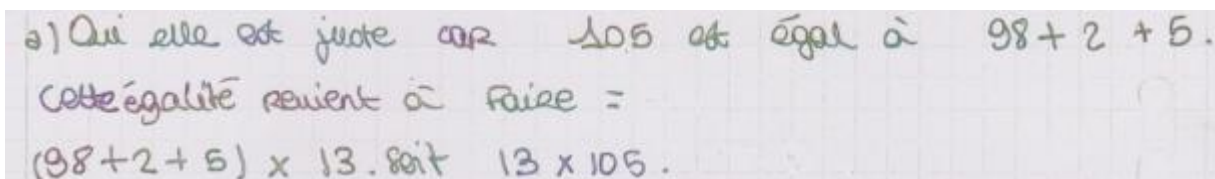 a) Oui elle est juste car 105 est égal à 98 + 2 + 5.
cette égalité revient à faire =
(98 + 2 + 5) × 13. soit 13 × 105.